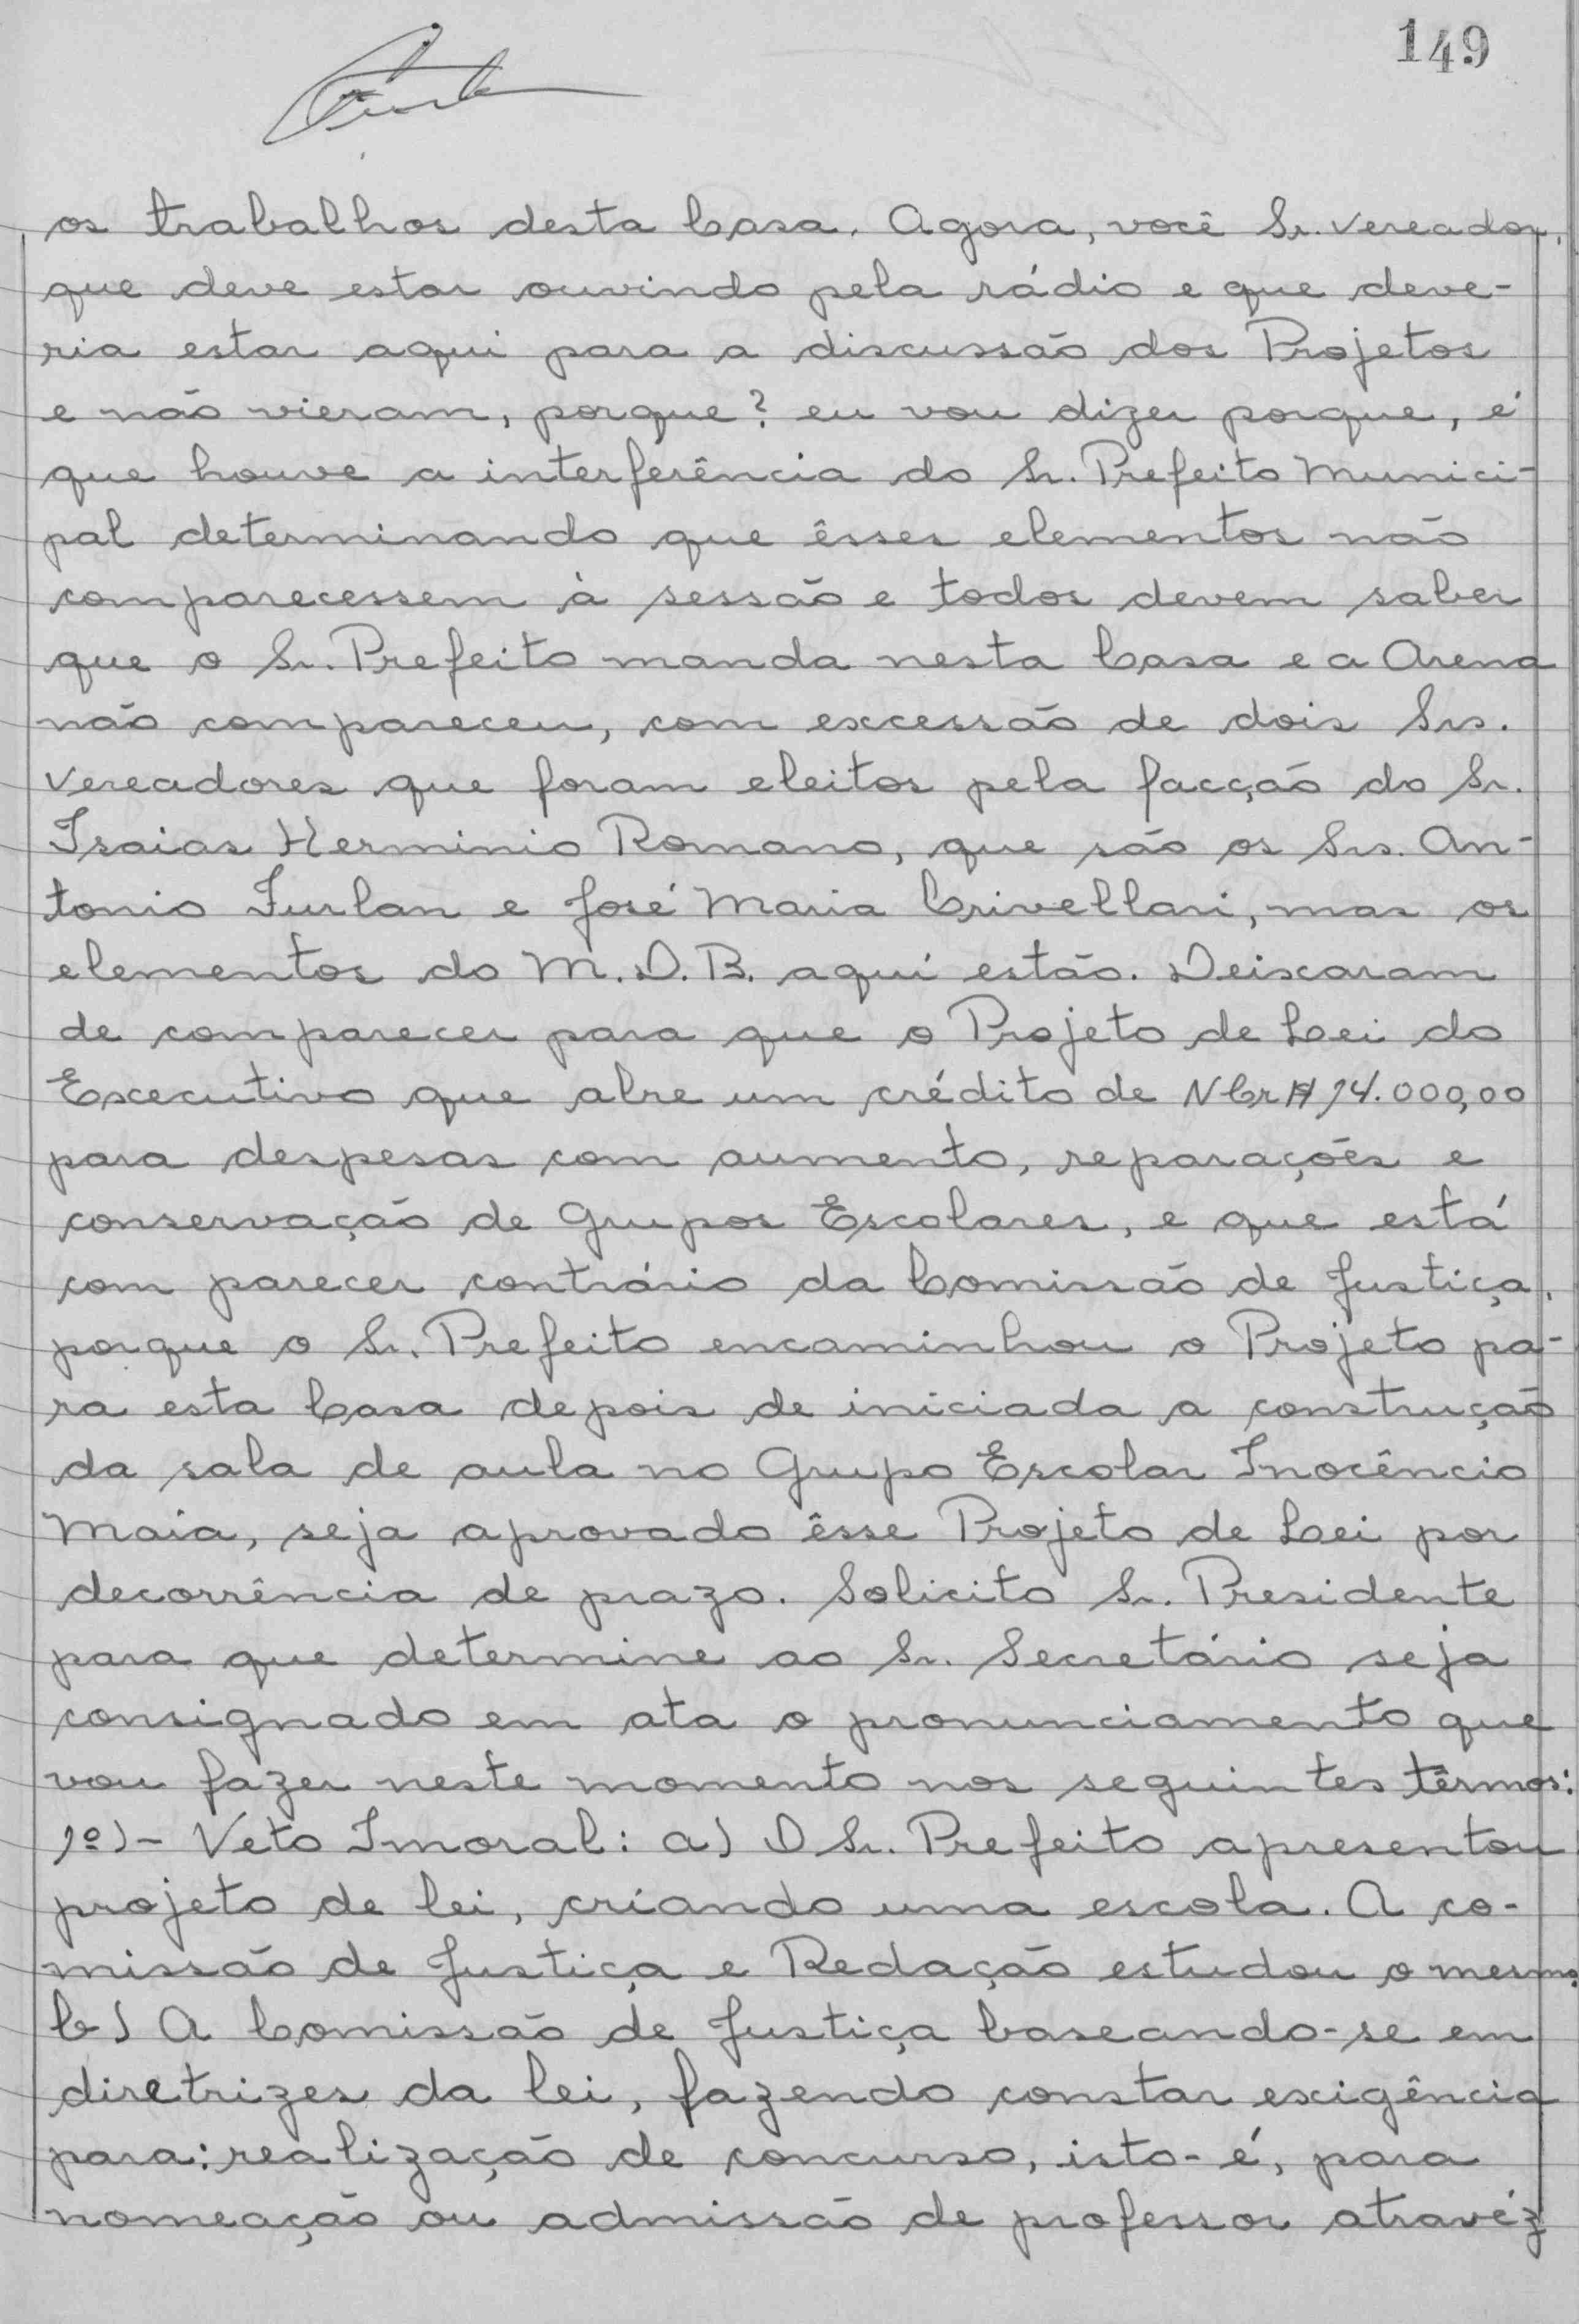 149
os trabalhos desta Casa. Agora, você Sr. Vereador,
que deve estar ouvindo pela rádio e que deve-
ria estar aqui para a discussão dos Projetos
e não vieram, porque? eu vou dizer porque, é
que houve a interferência do Sr. Prefeito Munici-
pal determinando que êsses elementos não
comparecessem à sessão e todos devem saber
que o Sr. Prefeito manda nesta Casa e a Arena
não compareceu, com excessão de dois Srs.
Vereadores que foram eleitos pela facção do Sr.
Isaias Herminio Romano, que são os Srs. An-
tonio Furlan e José Maria Crivellari, mas os
elementos do M.D.B. aqui estão. Deixaram
de comparecer para que o Projeto de Lei do
Executivo que abre um crédito de NCr$ 14.000,00
para despesas com aumento, reparações e
conservação de Grupos Escolares, e que está
com parecer contrário da Comissão de Justiça,
porque o Sr. Prefeito encaminhou o Projeto pa-
ra esta Casa depois de iniciada a construção
da sala de aula no Grupo Escolar Inocêncio
Maia, seja aprovado êsse Projeto de Lei por
decorrência de prazo. Solicito Sr. Presidente
para que determine ao Sr. Secretário seja
consignado em ata o pronunciamento que
vou fazer neste momento nos seguintes têrmos:
1º)- Veto Imoral: a) O Sr. Prefeito apresentou
projeto de lei, criando uma escola. A co-
missão de Justiça e Redação estudou o mesmo.
b) A Comissão de Justiça baseando-se em
diretrizes da lei, fazendo constar exigência
para: realização de concurso, isto-é, para
nomeação ou admissão de professor atravéz